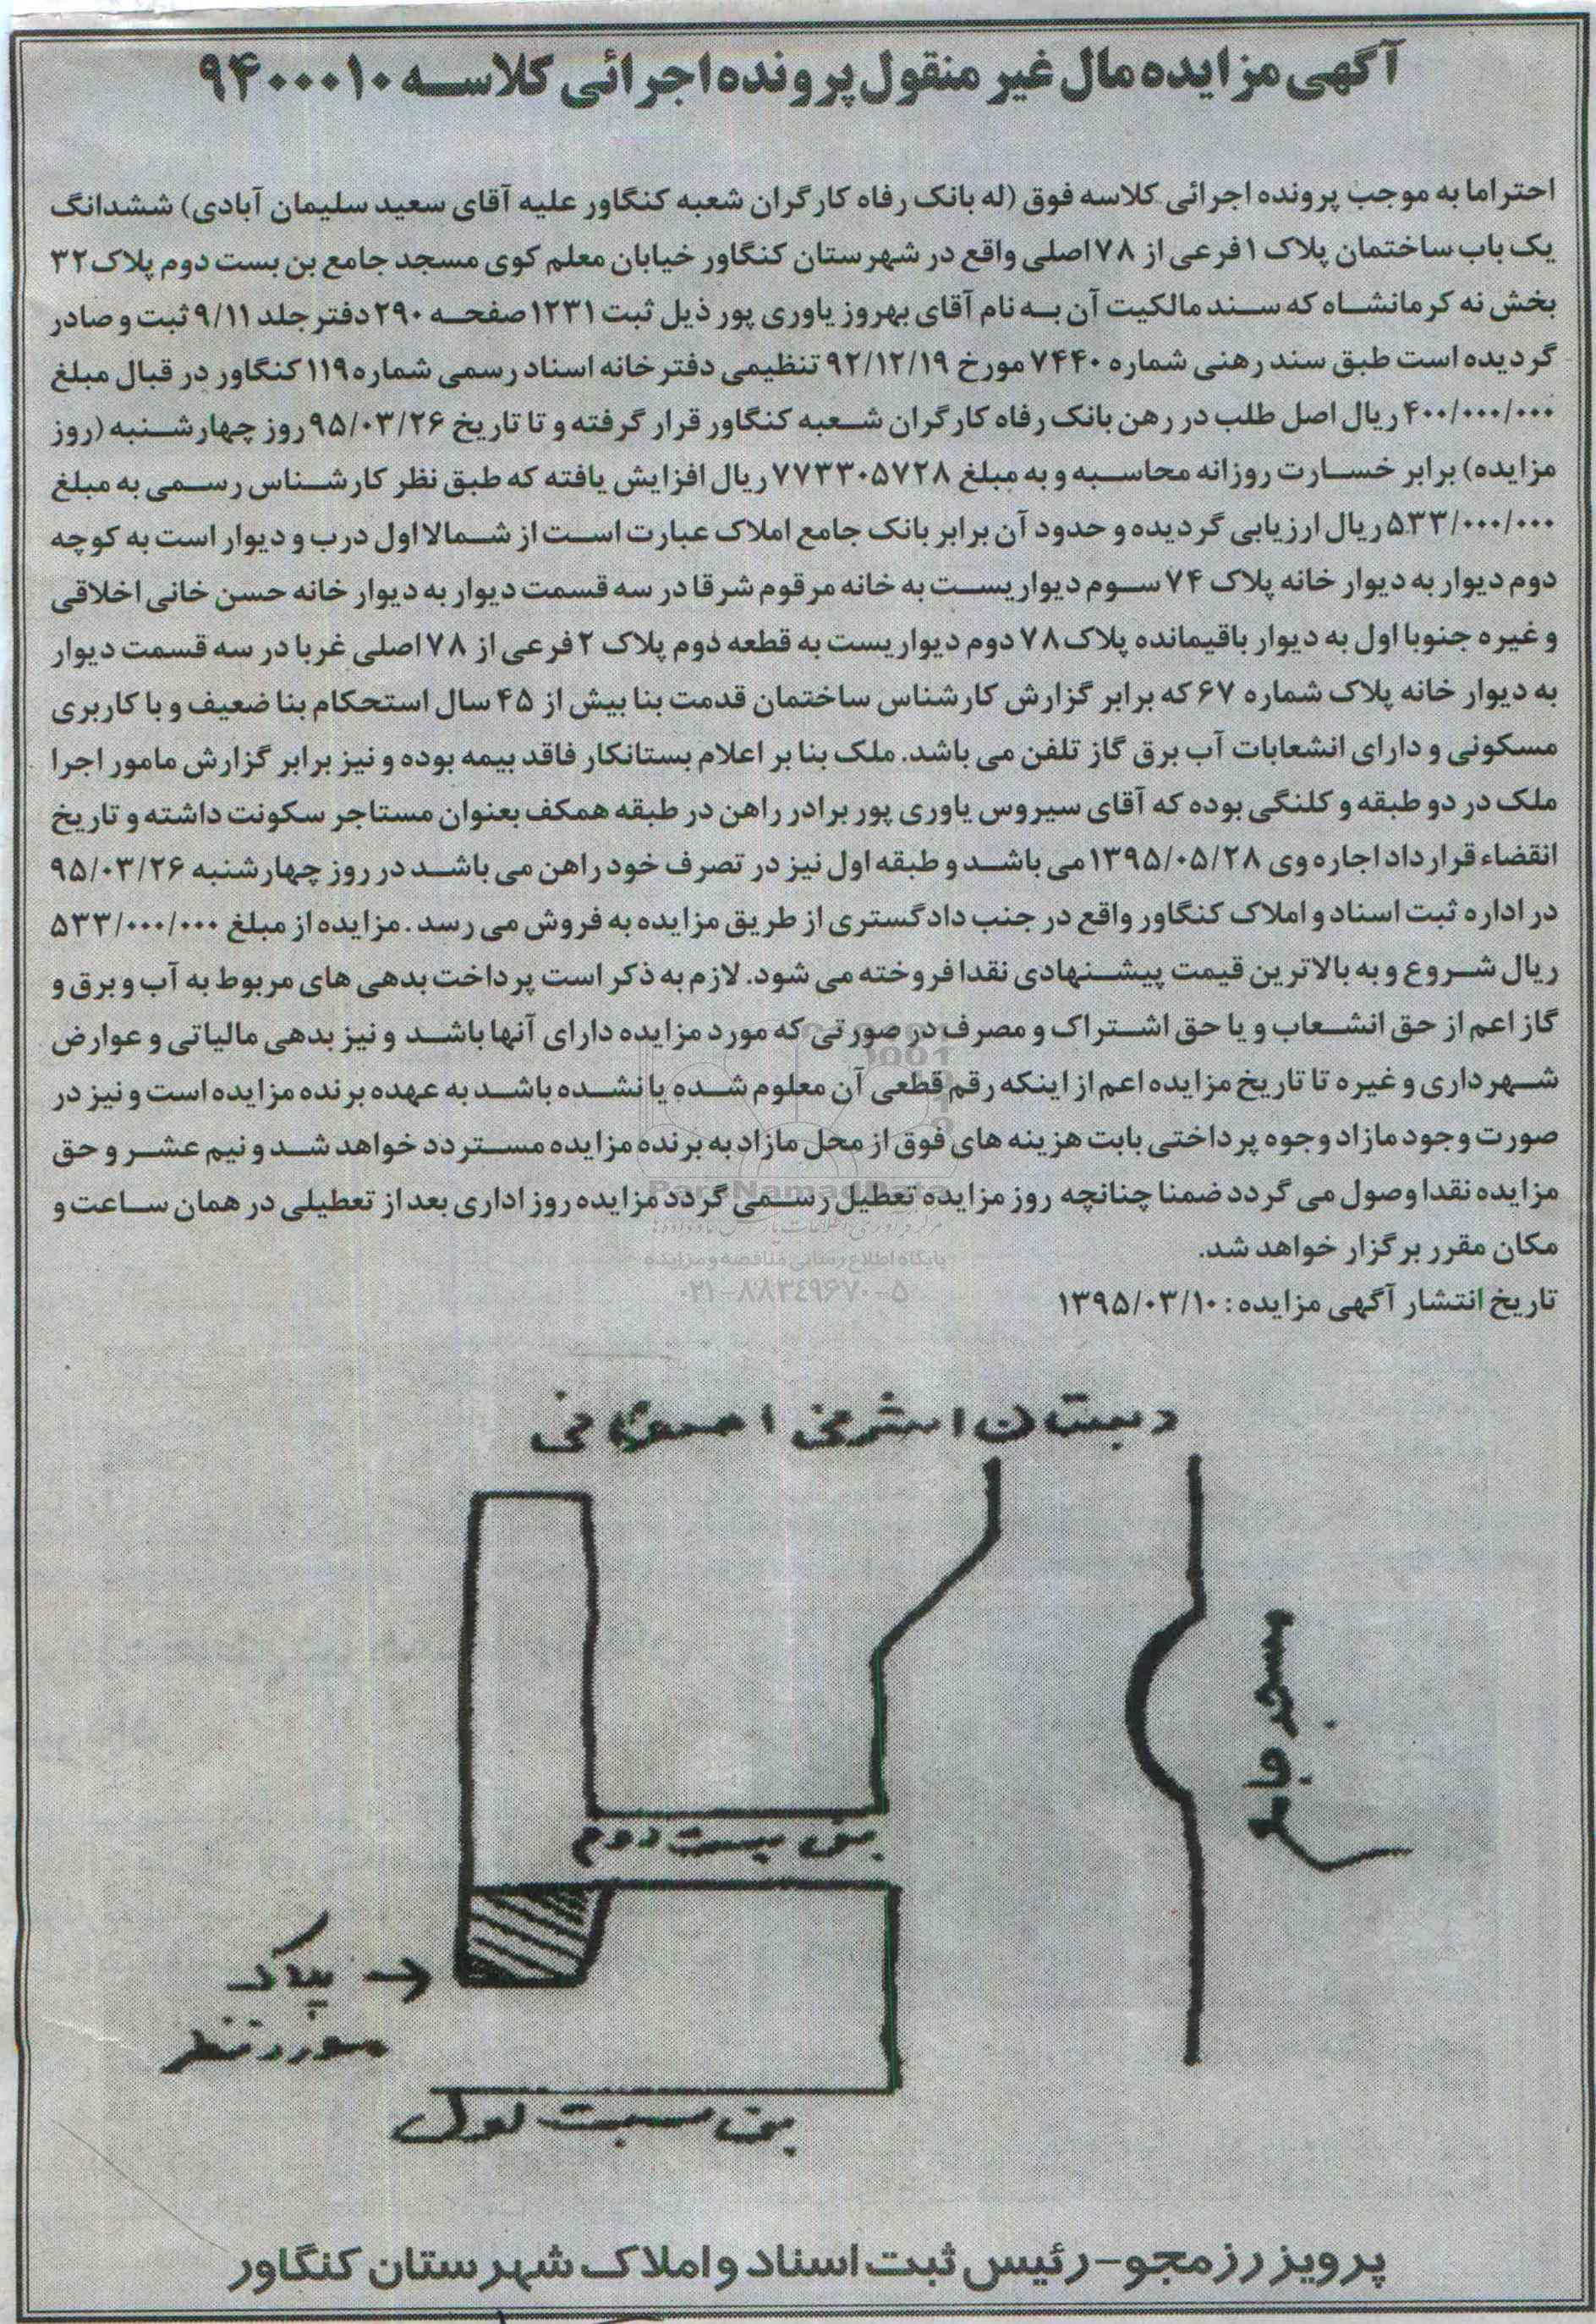 آگهی مزایده مال غیر منقول پرونده اجرائی کلاسه ۹۴۰۰۰۱۰
احتراما به موجب پرونده اجرائی کلاسه فوق (له بانک رفاه کارگران شعبه کنگاور علیه آقای سعید سلیمان آبادی) ششدانگ
یک باب ساختمان پلاک ۱ فرعی از ۷۸ اصلی واقع در شهرستان کنگاور خیابان معلم کوی مسجد جامع بن بست دوم پلاک ۳۲
بخش نه کرمانشاه که سند مالکیت آن به نام آقای بهروز یاوری پور ذیل ثبت ۱۲۳۱ صفحه ۲۹۰ دفتر جلد ۹/۱۱ ثبت و صادر
گردیده است طبق سند رهنی شماره ۷۴۴۰ مورخ ۹۲/۱۲/۱۹ تنظیمی دفترخانه اسناد رسمی شماره ۱۱۹ کنگاور در قبال مبلغ
۴۰۰/۰۰۰/۰۰۰ ریال اصل طلب در رهن بانک رفاه کارگران شعبه کنگاور قرار گرفته و تا تاریخ ۹۵/۰۳/۲۶ روز چهارشنبه (روز
مزایده) برابر خسارت روزانه محاسبه و به مبلغ ۷۷۳۳۰۵۷۲۸ ریال افزایش یافته که طبق نظر کارشناس رسمی به مبلغ
۵۳۳/۰۰۰/۰۰۰ ریال ارزیابی گردیده و حدود آن برابر بانک جامع املاک عبارت است از شمالا اول درب و دیوار است به کوچه
دوم دیوار به دیوار خانه پلاک ۷۴ سوم دیواریست به خانه مرقوم شرقا در سه قسمت دیوار به دیوار خانه حسن خانی اخلاقی
و غیره جنوبا اول به دیوار باقیمانده پلاک ۷۸ دوم دیواریست به قطعه دوم پلاک ۲ فرعی از ۷۸ اصلی غربا در سه قسمت دیوار
به دیوار خانه پلاک شماره ۶۷ که برابر گزارش کارشناس ساختمان قدمت بنا بیش از ۴۵ سال استحکام بنا ضعیف و با کاربری
مسکونی و دارای انشعابات آب برق گاز تلفن می باشد. ملک بنا بر اعلام بستانکار فاقد بیمه بوده و نیز برابر گزارش مامور اجرا
ملک در دو طبقه و کلنگی بوده که آقای سیروس یاوری پور برادر راهن در طبقه همکف بعنوان مستاجر سکونت داشته و تاریخ
انقضاء قرارداد اجاره وی ۱۳۹۵/۰۵/۲۸ می باشد و طبقه اول نیز در تصرف خود راهن می باشد در روز چهارشنبه ۹۵/۰۳/۲۶
در اداره ثبت اسناد و املاک کنگاور واقع در جنب دادگستری از طریق مزایده به فروش می رسد. مزایده از مبلغ ۵۳۳/۰۰۰/۰۰۰
ریال شروع و به بالاترین قیمت پیشنهادی نقدا فروخته می شود. لازم به ذکر است پرداخت بدهی های مربوط به آب و برق و
گاز اعم از حق انشعاب و یا حق اشتراک و مصرف در صورتی که مورد مزایده دارای آنها باشد و نیز بدهی مالیاتی و عوارض
شهرداری و غیره تا تاریخ مزایده اعم از اینکه رقم قطعی آن معلوم شده یا نشده باشد به عهده برنده مزایده است و نیز در
صورت وجود مازاد وجوه پرداختی بابت هزینه های فوق از محل مازاد به برنده مزایده مستردد خواهد شد و نیم عشر و حق
مزایده نقدا وصول می گردد ضمنا چنانچه روز مزایده تعطیل رسمی گردد مزایده روز اداری بعد از تعطیلی در همان ساعت و
مکان مقرر برگزار خواهد شد.
پایگاه اطلاع رسانی مناقصه و مزایده
۰۲۱-۸۸۳۴۹۶۷۰-۵
تاریخ انتشار آگهی مزایده: ۱۳۹۵/۰۳/۱۰
دبستان اشرفی اصفهانی
مسجد جامع
بن بست دوم
پلاک
مورد نظر
بن بست اول
پرویز رزمجو-رئیس ثبت اسناد و املاک شهرستان کنگاور